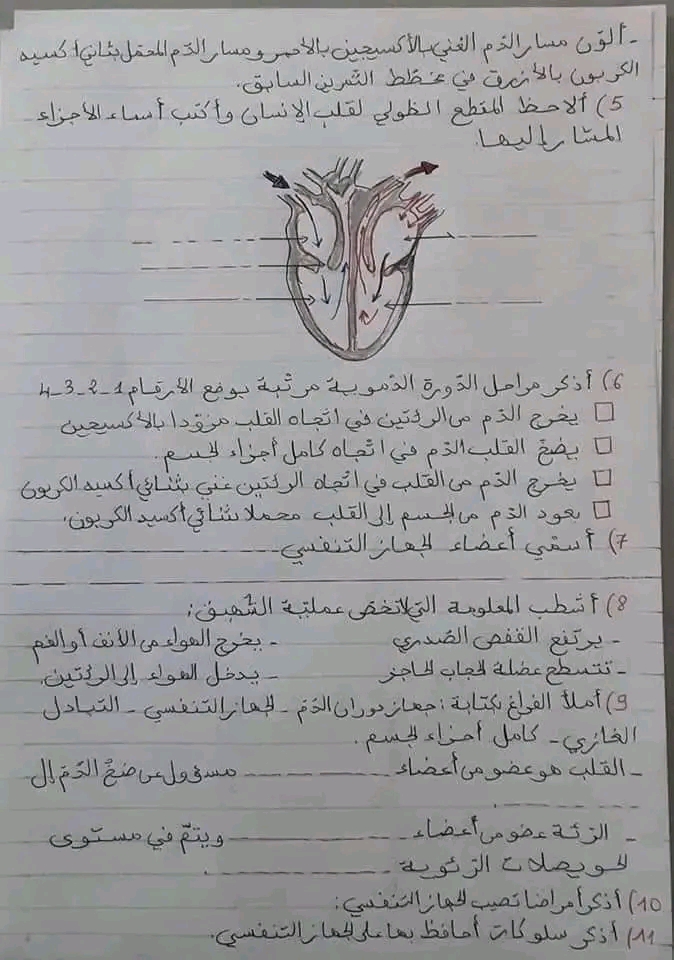 - ألوّن مسار الدّم الغني بالأكسيجين بالأحمر ومسار الدّم المحمّل بثاني أكسيد
الكربون بالأزرق في مخطّط التّمرين السابق.
5) ألاحظ المقطع الطولي لقلب الإنسان وأكتب أسماء الأجزاء
المشار إليها.
6) أذكر مراحل الدّورة الدّموية مرتّبة بوضع الأرقام 1-2-3-4
□ يخرج الدّم من الرئتين في اتجاه القلب مزوّدا بالأكسيجين
□ يضخّ القلب الدّم في اتّجاه كامل أجزاء الجسم.
□ يخرج الدّم من القلب في اتجاه الرئتين غني بثنائي أكسيد الكربون
□ يعود الدّم من الجسم إلى القلب محملا بثنائي أكسيد الكربون.
7) أسمّي أعضاء الجهاز التنفسي
8) أشطب المعلومة التي لا تخصّ عمليّة الشهيق:
- يرتفع القفص الصّدري - يخرج الهواء من الأنف أو الفم
- تتسطح عضلة الحجاب الحاجز - يدخل الهواء إلى الرئتين.
9) أملأ الفراغ بكتابة: جهاز دوران الدّم - الجهاز التنفسي - التبادل
الغازي - كامل أجزاء الجسم.
- القلب هو عضو من أعضاء ---------- مسؤول عن ضخّ الدّم إلى
----------.
- الرّئة عضو من أعضاء ---------- ويتمّ في مستوى
الحويصلات الرّئوية ----------.
10) أذكر أمراضا تصيب الجهاز التنفسي:
11) أذكر سلوكات أحافظ بها على الجهاز التنفسي.